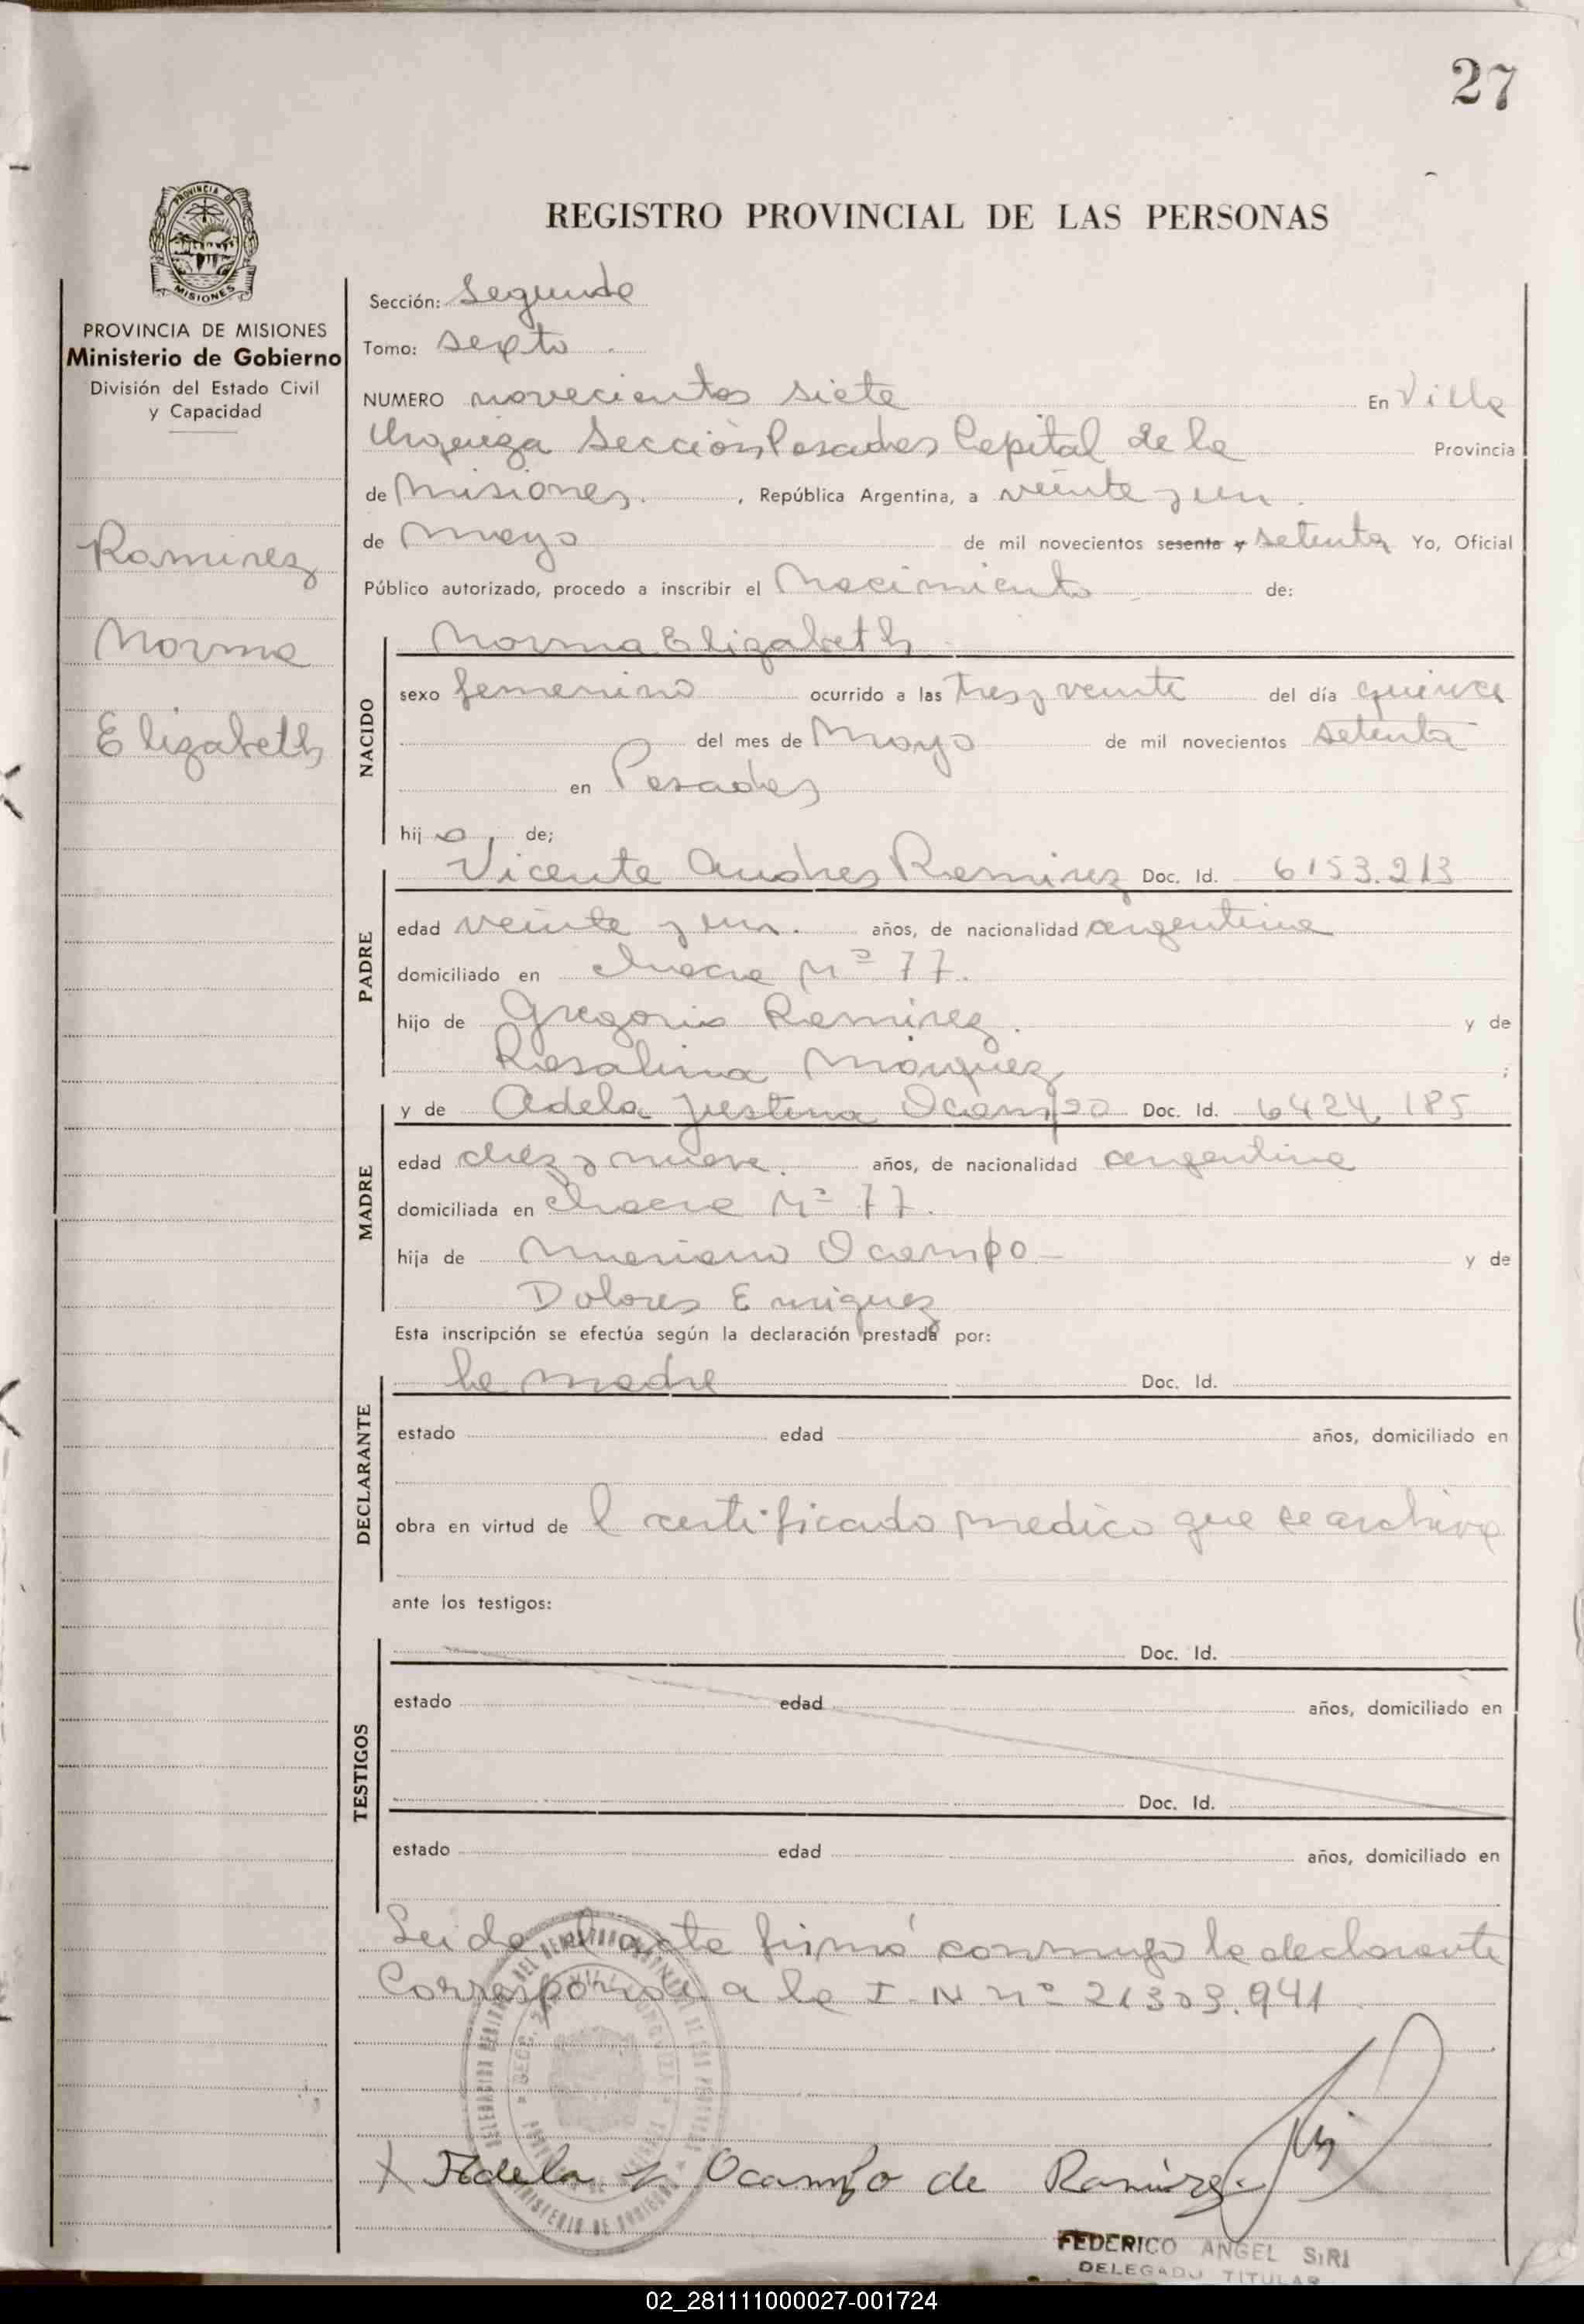 27
PROVINCIA DE MISIONES
REGISTRO PROVINCIAL DE LAS PERSONAS
PROVINCIA DE MISIONES
Ministerio de Gobierno
División del Estado Civil
y Capacidad
Ramirez
Norma
Elizabeth
Sección: Segunda
Tomo: sexto
NUMERO novecientos siete En Villa
Urquiza Sección Posadas Capital de la Provincia
de Misiones. , República Argentina, a veinte y un
de Mayo de mil novecientos sesenta y setenta Yo, Oficial
Público autorizado, procedo a inscribir el Nacimiento de:
NACIDO
Norma Elizabeth
sexo femenino ocurrido a las tres y veinte del día quince
del mes de Mayo de mil novecientos setenta
en Posadas
hija de;
PADRE
Vicente Andres Ramirez Doc. Id. 6153.213
edad veinte y un. años, de nacionalidad argentina
domiciliado en chacra Nº 77.
hijo de Gregorio Ramirez. y de
Rosalina Marquez ;
MADRE
y de Adela Justina Ocampo Doc. Id. 6424.185
edad diez y nueve. años, de nacionalidad argentina
domiciliada en Chacra Nº 77.
hija de Mariano Ocampo y de
Dolores Enriquez
Esta inscripción se efectúa según la declaración prestada por:
DECLARANTE
la madre Doc. Id.
estado edad años, domiciliado en
obra en virtud de l certificado medico que se archiva
ante los testigos:
TESTIGOS
Doc. Id.
estado edad años, domiciliado en
Doc. Id.
estado edad años, domiciliado en
Leida el acta firmó conmigo la declarante
Corresponde a la I. N nº 21303.941
Adela J. Ocampo de Ramirez
FEDERICO ANGEL SIRI
DELEGADO TITULAR
02_281111000027-001724